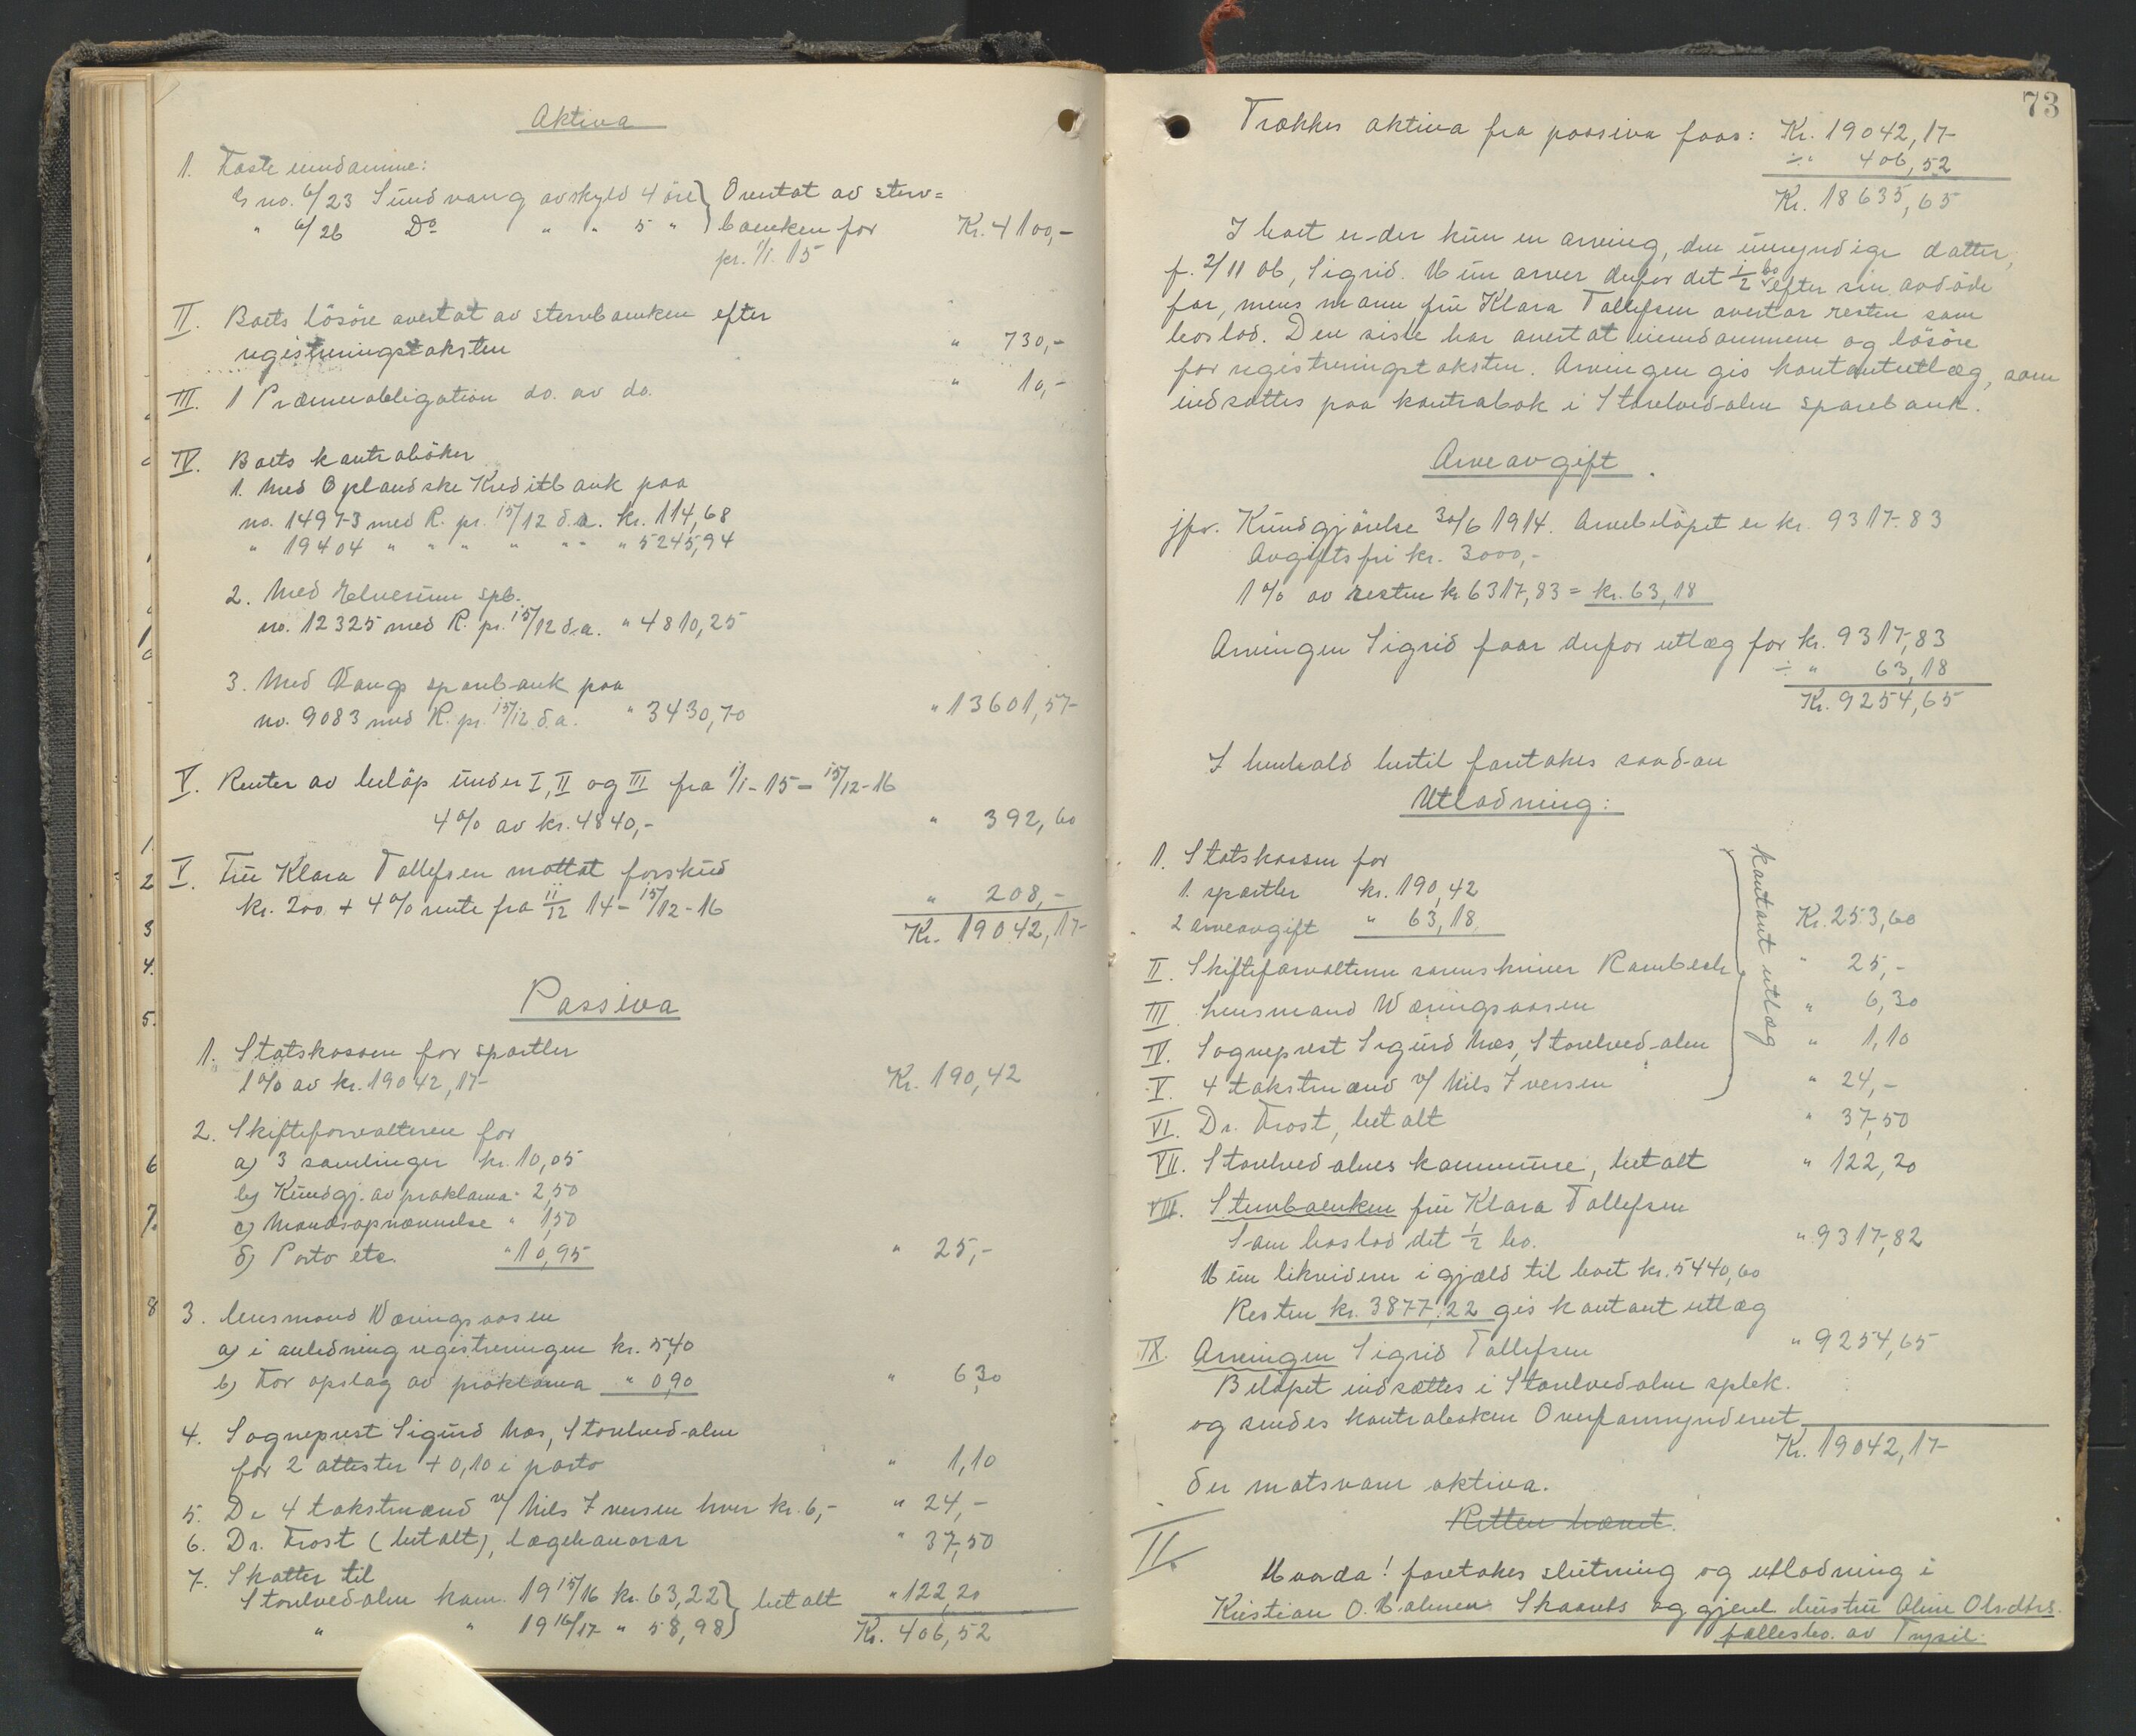 Aktiva
1. Faste eiendomme:
G no. 6/23 Sundvang avskyld 4 öre } Overtat av sterv=
" 6/26 Do " " 5 " } boenken for Kr. 4100,-
pr. 1/1 15
II. Boets lösöre overtat av stervboenken efter
registreringstaksten " 730,-
III. 1 Præmieobligation do. av do. " 10,-
IV. Boets kontraböker
1. Med Oplandske Kreditbank paa
no. 14973 med R. pr. 15/12 d.a. kr. 114,68
" 19404 " " " " " " " 5245,94
2. Med Elverum spb.
no. 12325 med R. pr. 15/12 d.a. " 4810,25
3. Med Vangs sparebank paa
no. 9083 med R. pr. 15/12 d.a. " 3430,70 " 13601,57
V. Renter av beløp under I, II og III fra 1/1-15 - 15/12-16
4% av kr. 4840,- " 392,60
V. Fru Klara Tollefsen mottat forskud
kr. 200 + 4% rente fra 11/12 14 - 15/12-16 " 208,-
Kr. 19042,17
Passiva
1. Statskassen for sportler
1% av kr. 19042,17 Kr. 190,42
2. Skifteforvalteren for
a) 3 samlinger kr. 10,05
b) Kundgj. av proklama " 2,50
c) Mandsopnævnelse " 1,50
d) Porto etc. " 10,95 " 25,-
3. Lensmand Wæringsaasen
a) i anledning registreringen kr. 5,40
b) For opslag av proklama " 0,90 " 6,30
4. Sogneprest Sigurd Næs, Storelvedalen
for 2 attester + 0,10 i porto " 1,10
5. De 4 takstmænd v/ Nils Iversen hver kr. 6,- " 24,-
6. Dr. Frost (betalt), lægehonorar " 37,50
7. Skatter til
Storelvedalen kom. 1915/16 kr. 63,22 } betalt " 122,20
" " 1916/17 " 58,98 } Kr. 406,52
73
Trækkes aktiva fra passiva faaes: Kr. 19042,17
÷ " 406,52
Kr. 18635,65
I boet er der kun en arving, den umyndige datter,
f. 2/11 06, Sigrid. Hun arver derfor det 1/2 bo efter sin avdöde
far, mens mann fru Klara Tollefsen overtar resten som
boslod. Den siste har overtat eiendommen og lösöre
for registreringstaksten. Arvingen gis kontantutlæg, som
indsættes paa kontrabok i Storelvedalen sparebank.
Arveavgift.
jfr. Kundgjörelse 30/6 1914. Arvebelöpet er kr. 9317.83
Avgiftsfri kr. 3000,-
1% av resten kr 6317,83 = kr. 63,18
Arvingen Sigrid faar derfor utlæg for kr. 9317,83
÷ " 63,18
Kr. 9254,65
I henhold hertil foretakes saadan
Utlodning:
1. Statskassen for
1. sportler kr. 190,42
2 arveavgift " 63,18 Kr. 253,60
II. Skifteforvalteren sorenskriver Rambech " 25,-
III. Lensmand Wæringsaasen " 6,30
IV. Sogneprest Sigurd Næs, Storelvedalen " 1,10
V. 4 takstmænd v/ Nils Iversen " 24,-
kontant utlæg
VI. Dr. Frost, betalt " 37,50
VII. Storelvedalens kommune, betalt " 122,20
VIII. Stervboenken fru Klara Tollefsen
Som boslod det 1/2 bo. " 9317,82
Hun likviderer i gjæld til boet kr. 5440,60
Resten kr. 3877,22 gis kontant utlæg
IX. Arvingen Sigrid Tollefsen " 9254,65
Belöpet indsættes i Storelvedalen spbk.
og sendes kontraboken Overformynderiet
Kr. 19042,17
der motsvarer aktiva.
Retten hævet.
II.
Hvorda! foretakes slutning og utlodning i
Kristian O. Holmen Skaarets og gjenl. hustru Oline Olsdtrs.
fællesbo. av Trysil.
1.
2
3
4.
5.
6
7.
8